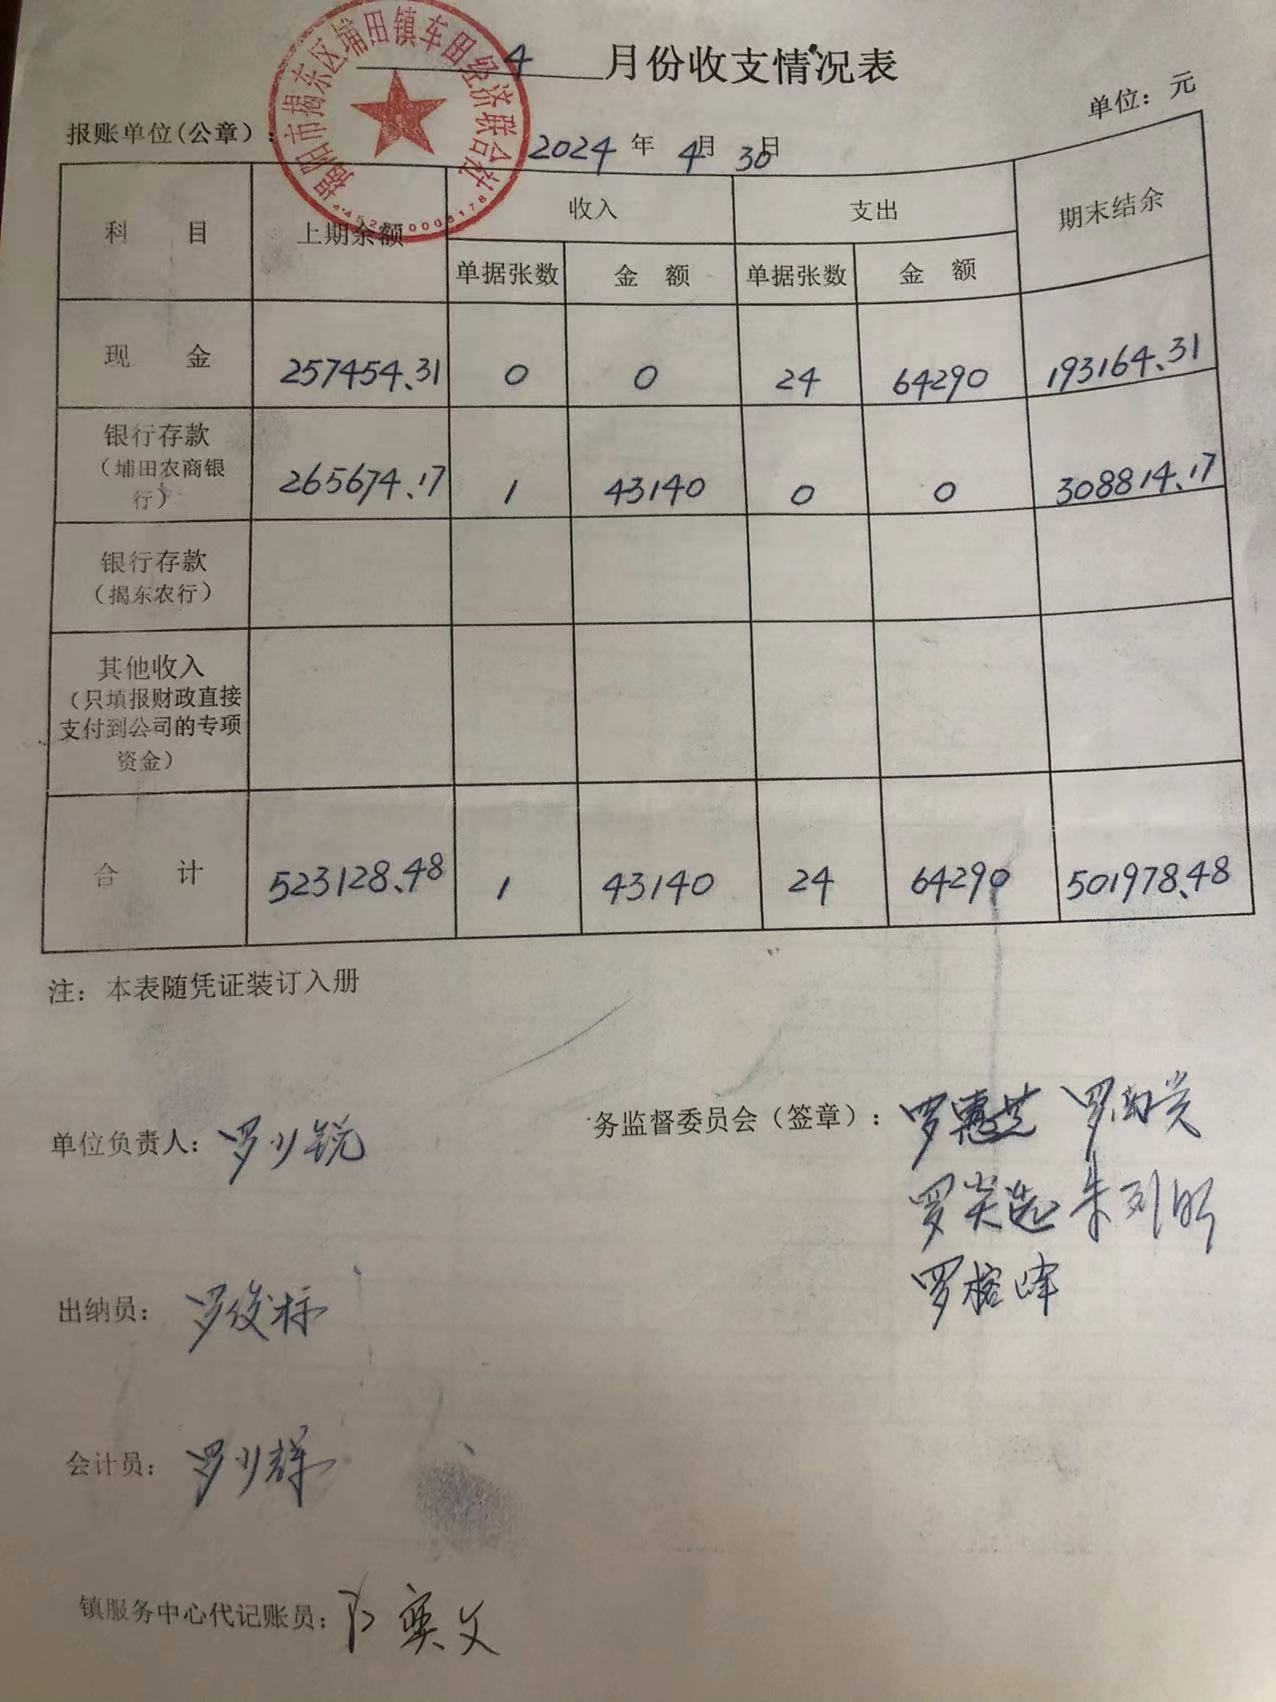 4 月份收支情况表
单位：元
报账单位(公章)：
2024 年 4月 30日
揭阳市揭东区埔田镇车田经济联合社
科 目 上期余额 收入 支出 期末结余
单据张数 金 额 单据张数 金 额
现 金 257454.31 0 0 24 64290 193164.31
银行存款
（埔田农商银
行）
265674.17 1 43140 0 0 308814.17
银行存款
（揭东农行）
其他收入
（只填报财政直接
支付到公司的专项
资金）
合 计 523128.48 1 43140 24 64290 501978.48
注：本表随凭证装订入册
单位负责人：罗少锐
务监督委员会（签章）：罗惠芝
朱列明
罗榕峰
出纳员：罗俊标
会计员：罗少群
镇服务中心代记账员：奕文